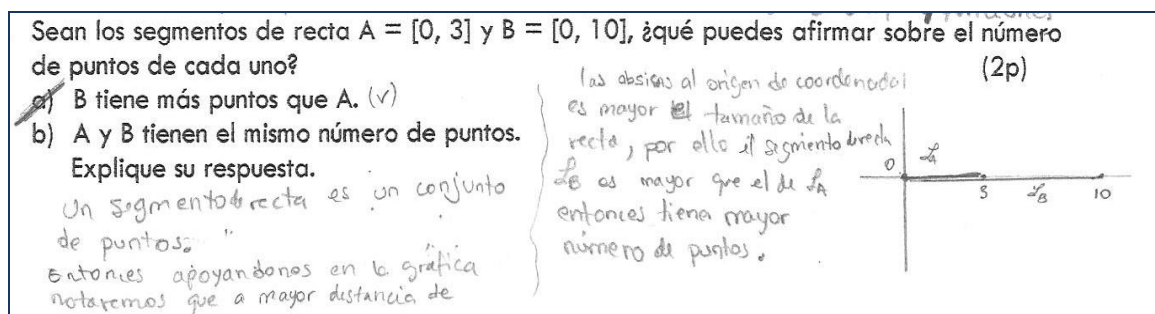 Sean los segmentos de recta A = [0, 3] y B = [0, 10], ¿qué puedes afirmar sobre el número
de puntos de cada uno? (2p)
a) B tiene más puntos que A. (v)
b) A y B tienen el mismo número de puntos.
Explique su respuesta.
Un segmento de recta es un conjunto
de puntos. "
Entonces apoyandonos en la gráfica
notaremos que a mayor distancia de
las absisas al origen de coordenadas
es mayor el tamaño de la
recta, por ello el segmento de recta
L_B es mayor que el de L_A
entonces tiene mayor
número de puntos.
0 L_A
3 L_B 10